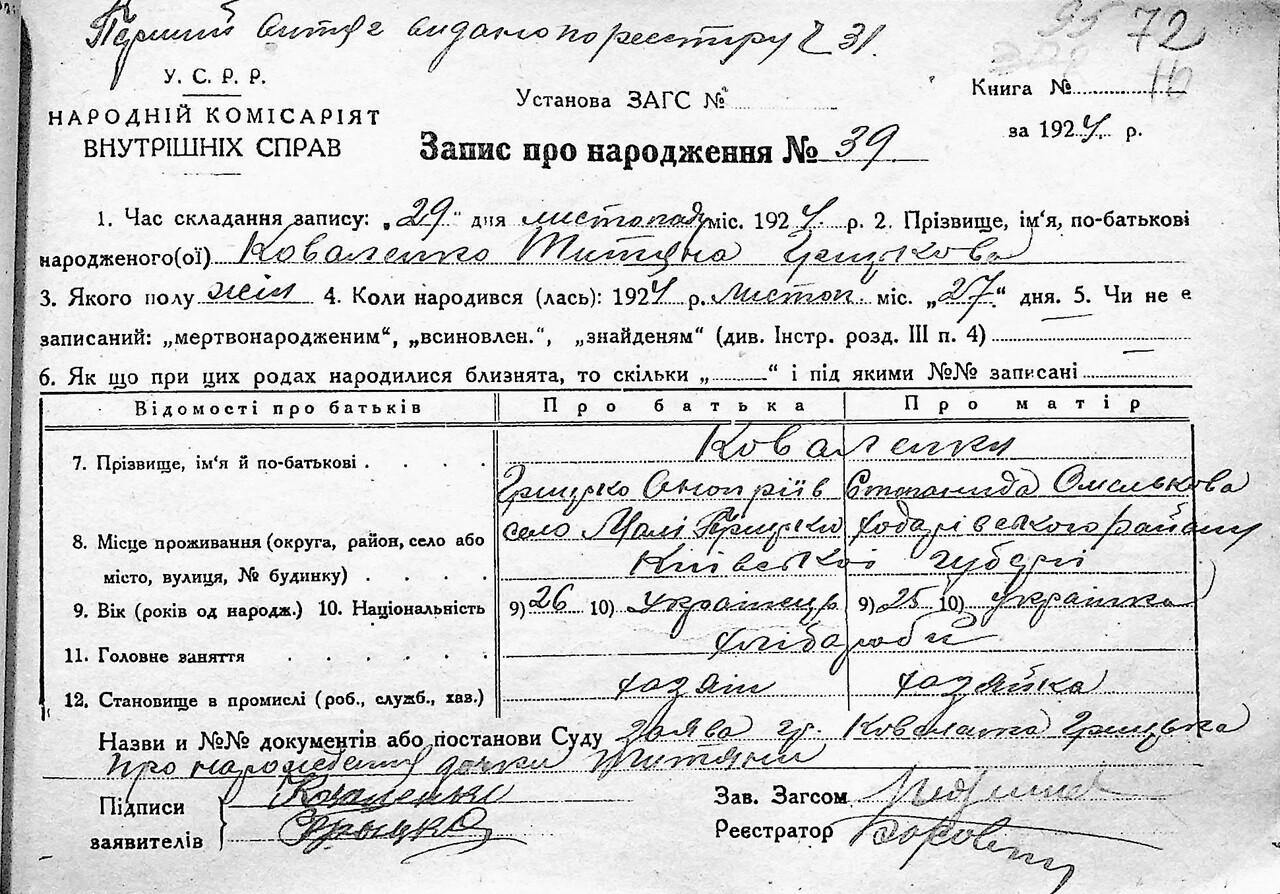 Перший витяг видано по реєстру Ч 31
95 72
У. С. Р. Р.
НАРОДНІЙ КОМІСАРІЯТ
ВНУТРІШНІХ СПРАВ
Установа ЗАГС №
Книга №
за 1924 р.
Запис про народження № 39
1. Час складання запису: „29" дня листопаду міс. 1924 р. 2. Прізвище, ім'я, по-батькові
народженого(ої) Коваленко Титяна Грицькова
3. Якого полу жін 4. Коли народився (лась): 1924 р. листоп. міс. „27" дня. 5. Чи не є
записаний: „мертвонародженим", „всиновлен.", „знайденям" (див. Інстр. розд. III п. 4)
6. Як що при цих родах народилися близнята, то скільки „ " і під якими №№ записані
Відомості про батьків Про батька Про матір
7. Прізвище, ім'я й по-батькові Коваленки
Грицько Оноприїв Степанида Омелькова
8. Місце проживання (округа, район, село або місто, вулиця, № будинку) село Малі Прицьки Ходорівського району
Київської губерні
9. Вік (років од народж.) 10. Національність 9) 26 10) Українець 9) 25 10) українка
11. Головне заняття хлібороби
12. Становище в промислі (роб., служб., хаз.) хазяін хазяйка
Назви и №№ документів або постанови Суду заява гр. Коваленка Грицька
про народження дочки Титяни
Підписи заявителів Коваленко
Грыцко
Зав. Загсом
Реєстратор